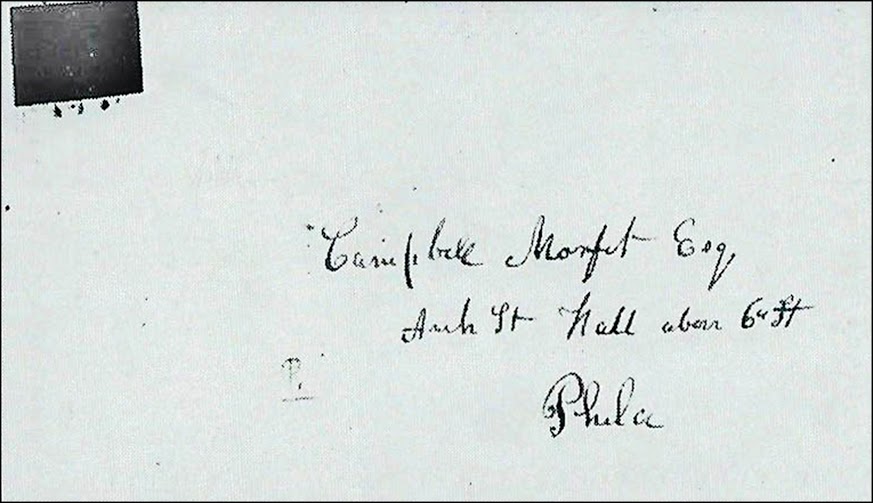 Campbell Morfit Esq,
Arch St Hall above 6th St
P.
Phila